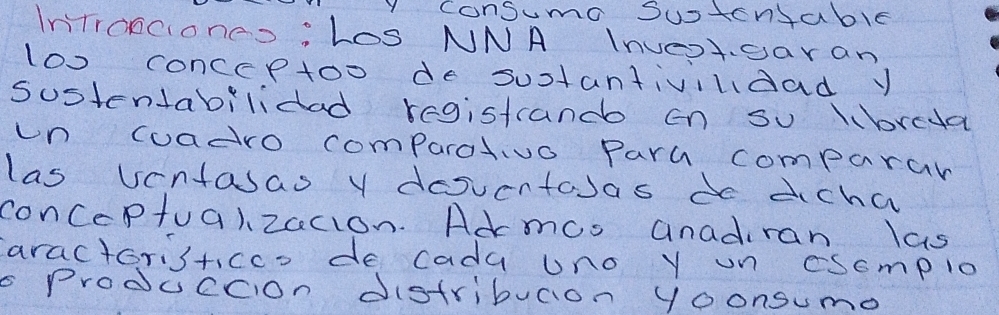 y consumo sustentable
Introcciones: Los NNA Investigaran
los conceptos de sustantivilidad y
sustentabilidad registrando en su libreta
un cuadro comparativo para comparar
las ventasas y desventajas de dicha
conceptualizacion. Ademas anadiran las
caracteristicas de cada uno y un esemplo
e Produccion distribucion y consumo